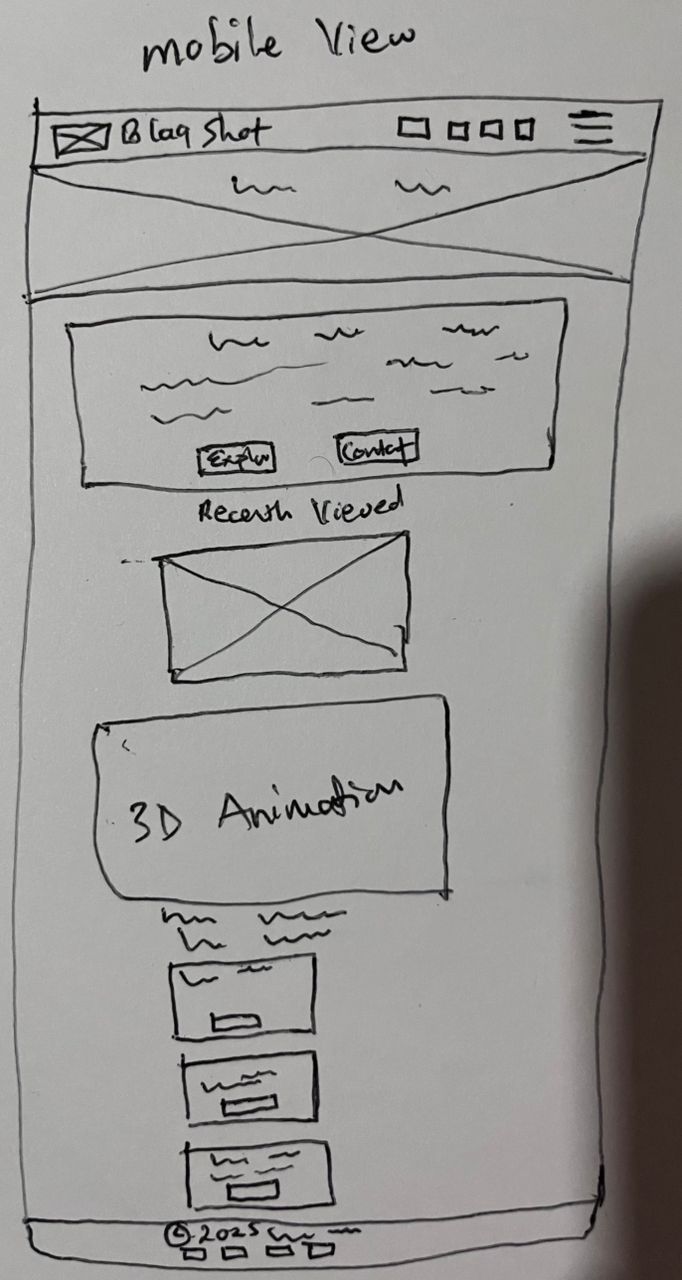 mobile View
Blaq Shot
Explor
Contat
Recenth Viewed
3D Animation
© 2025